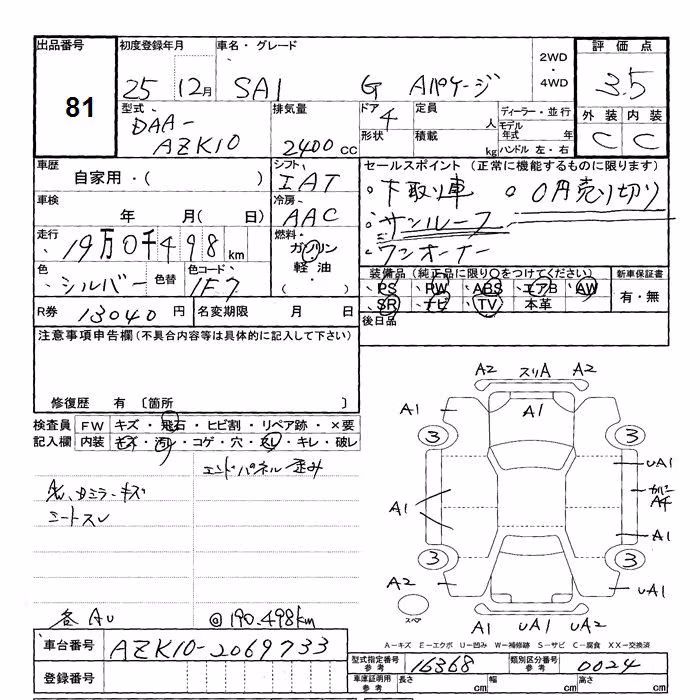 出品番号 初度登録年月 車名・グレード 2WD・4WD 評価点
81 25 12月 SAI G Aパケージ 3.5
型式 DAA-AZK10 排気量 2400cc ドア 4 定員 人 ディーラー・並行 外装 内装
形状 積載 kg モデル年式 年 ハンドル 左・右 C C
車歴 自家用・( ) シフト IAT セールスポイント (正常に機能するものに限ります)
。下取り車 。0円売り切り
車検 年 月( 日) 冷房 AAC 。サンルーフ
走行 19万0千498km 燃料 ガソリン 。ワンオーナー
軽油・( )
色 シルバー 色替 色コード 1F7 装備品(純正品に限り○をつけてください) 新車保証書
PS PW ABS エアB AW 有・無
SR ナビ TV 本革
R券 13040円 名変期限 月 日 後日品
注意事項申告欄(不具合内容等は具体的に記入して下さい)
修復歴 有 〔箇所
検査員 FW キズ・飛石・ヒビ割・リペア跡・×要
記入欄 内装 キズ・汚レ・コゲ・穴・スレ・キレ・破レ
エンドパネル歪み
シートスレ
各AU @190.498km
A2 スリA A2
A1 A1
3 3
UA1
A1
A1
3 3
A2 UA1
スペア
A1 UA1 UA2
A-キズ E-エクボ U-凹み W-補修跡 S-サビ C-腐食 XX-交換済
車台番号 AZK10-2069733
型式指定番号 参考 16368 類別区分番号 参考 0024
登録番号
車庫証明用 参考 長さ cm 幅 cm 高さ cm